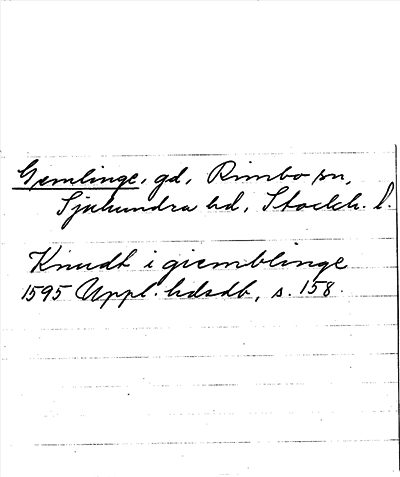 Gemlinge, gd, Rimbo sn,
Sjuhundra hd, Stockh. l.
Knudt i giemblinge
1595 Uppl. hdsdb, s. 158.